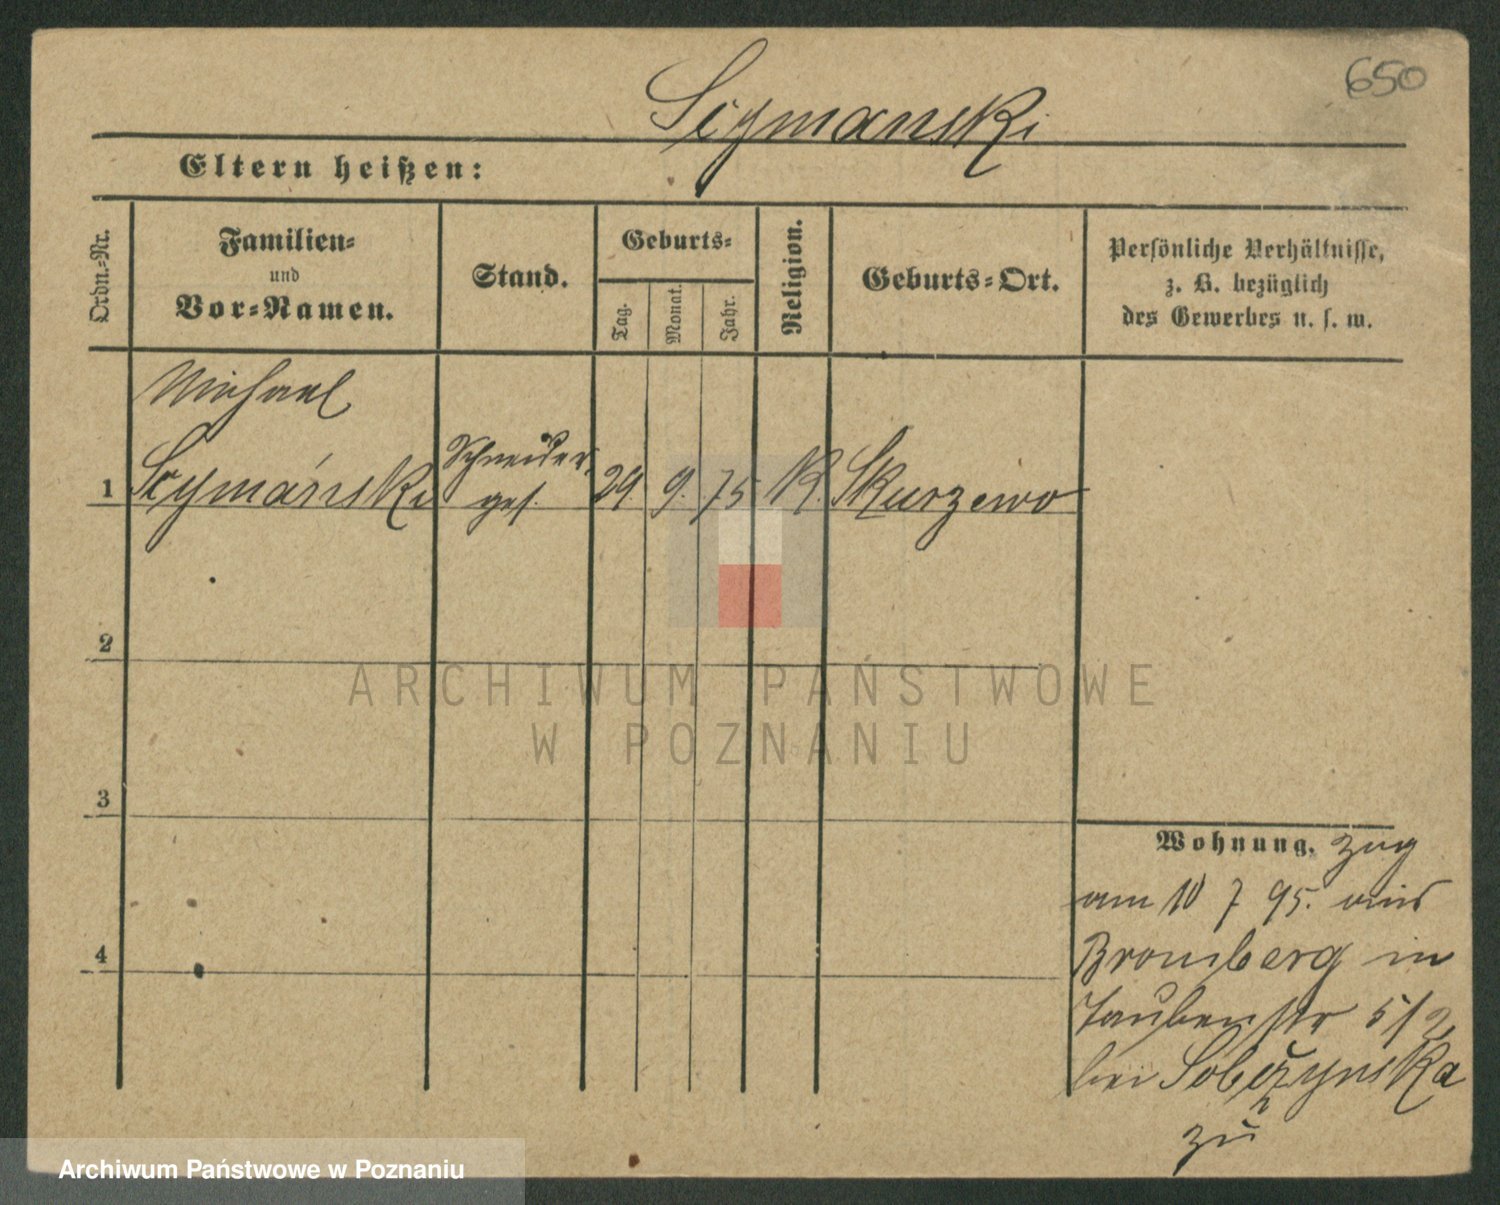 650
Scymanski
Eltern heißen:
Ordn.-Nr.
Familien-
und
Vor-Namen.
Stand.
Geburts-
Tag.
Monat.
Jahr.
Religion.
Geburts-Ort.
Persönliche Verhältnisse,
z. B. bezüglich
des Gewerbes u. s. w.
Michael
1 Scymánski
Schneider
ges.
29. 9. 75 K. Skurzewo
2
3
4
ARCHIWUM PAŃSTWOWE
W POZNANIU
Wohnung. zug
am 10 7 95. aus
Bromberg in
Taubenstr 5/2
bei
zu
Archiwum Państwowe w Poznaniu